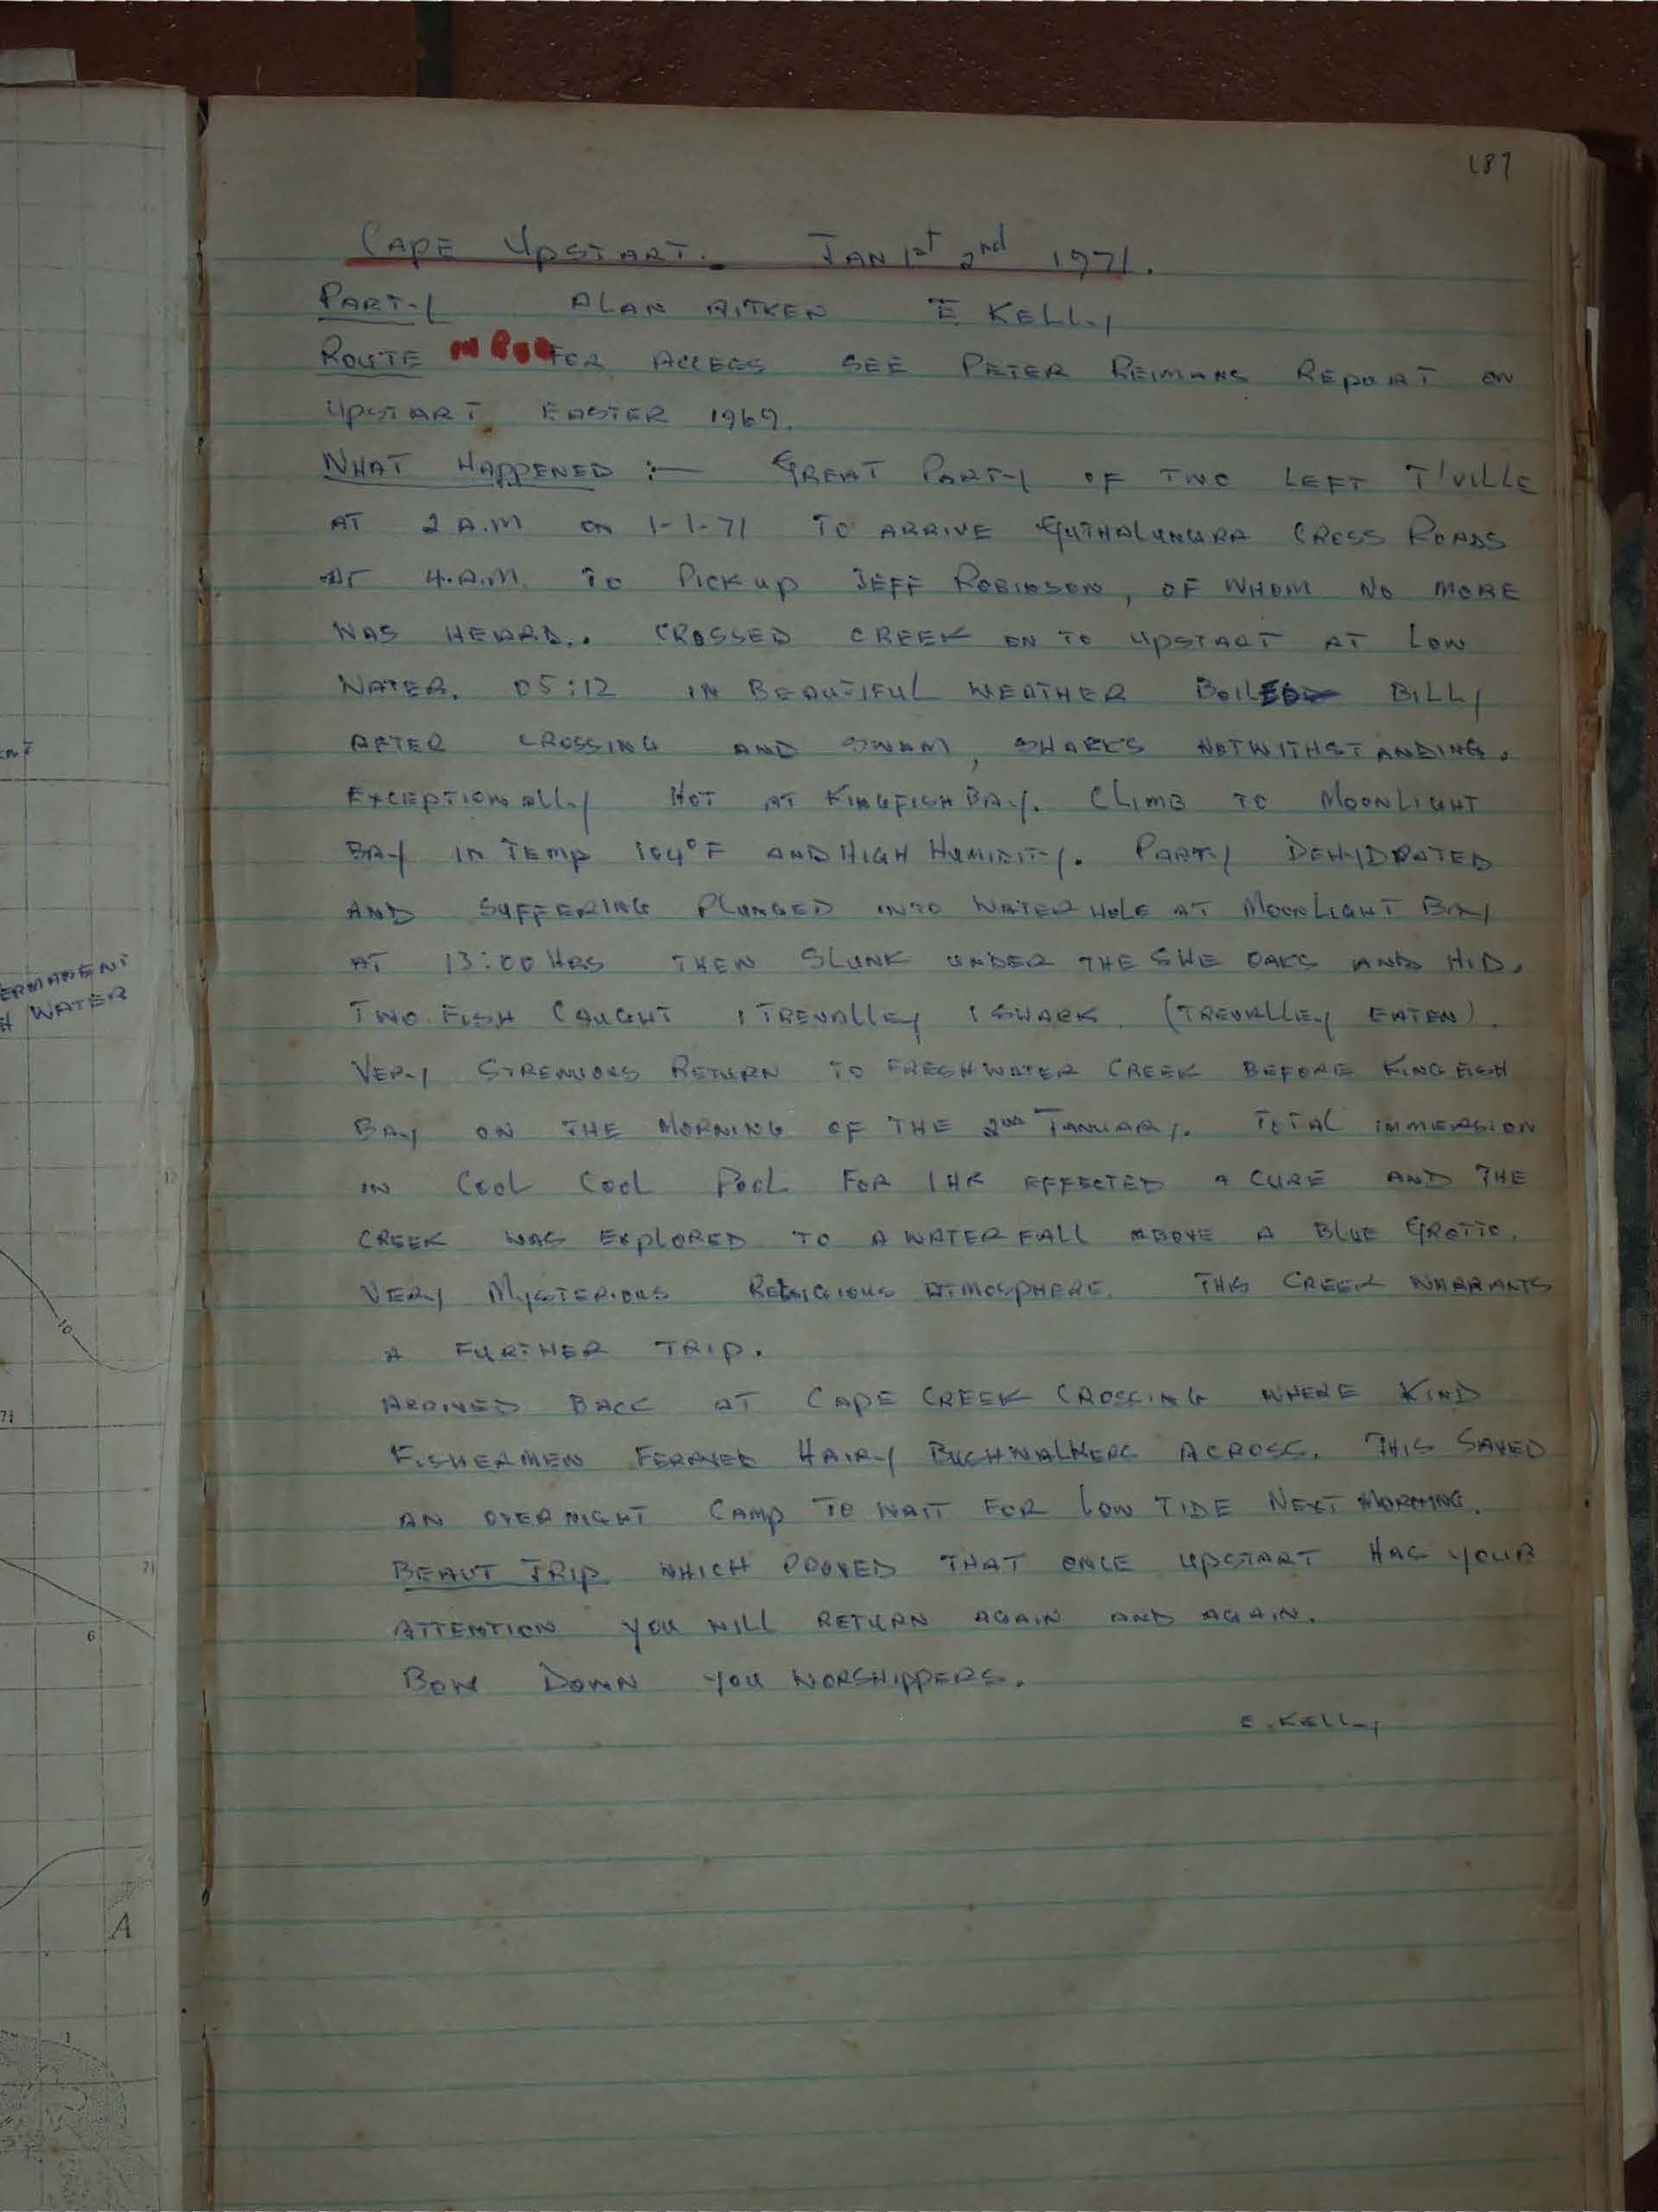 187
CAPE UPSTART. JAN 1st 2nd 1971.
PARTY ALAN AITKEN E KELLY
ROUTE FOR ACCESS SEE PETER REIMANS REPORT ON
UPSTART EASTER 1969.
WHAT HAPPENED :— GREAT PARTY OF TWO LEFT T'VILLE
AT 2 A.M ON 1-1-71 TO ARRIVE GUTHALUNGRA CROSS ROADS
AT 4.A.M. TO PICK UP JEFF ROBINSON, OF WHOM NO MORE
WAS HEARD.. CROSSED CREEK ON TO UPSTART AT LOW
WATER. 05:12 IN BEAUTIFUL WEATHER BOILED BILLY
AFTER CROSSING AND SWAM, SHARKS NOTWITHSTANDING.
EXCEPTIONALLY HOT AT KINGFISH BAY. CLIMB TO MOONLIGHT
BAY IN TEMP 104°F AND HIGH HUMIDITY. PARTY DEHYDRATED
AND SUFFERING PLUNGED INTO WATER HOLE AT MOONLIGHT BAY
AT 13:00 HRS THEN SLUNK UNDER THE SHE OAKS AND HID.
TWO FISH CAUGHT 1 TREVALLEY 1 SHARK. (TREVALLEY EATEN).
VERY STRENUOUS RETURN TO FRESHWATER CREEK BEFORE KINGFISH
BAY ON THE MORNING OF THE 2nd JANUARY. TOTAL IMMERSION
IN COOL COOL POOL FOR 1 HR EFFECTED A CURE AND THE
CREEK WAS EXPLORED TO A WATERFALL ABOVE A BLUE GROTTO.
VERY MYSTERIOUS RELIGIOUS ATMOSPHERE. THIS CREEK WARRANTS
A FURTHER TRIP.
ARRIVED BACK AT CAPE CREEK CROSSING WHERE KIND
FISHERMEN FERRYED HAIRY BUSHWALKERS ACROSS. THIS SAVED
AN OVERNIGHT CAMP TO WAIT FOR LOW TIDE NEXT MORNING.
BEAUT TRIP WHICH PROVED THAT ONCE UPSTART HAS YOUR
ATTENTION YOU WILL RETURN AGAIN AND AGAIN.
BOW DOWN YOU WORSHIPPERS.
E. KELLY
ERMANENT
H WATER
10
71
71
6
A
1